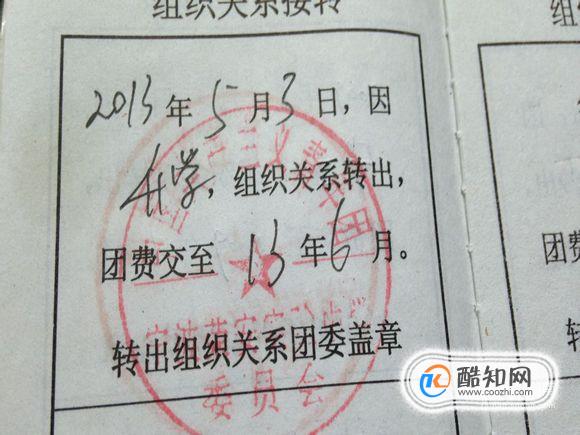 组织关系接转
2013年5月3日，因
升学，组织关系转出，
团费交至13年6月。
转出组织关系团委盖章
委员会
酷知网
www.coozhi.com